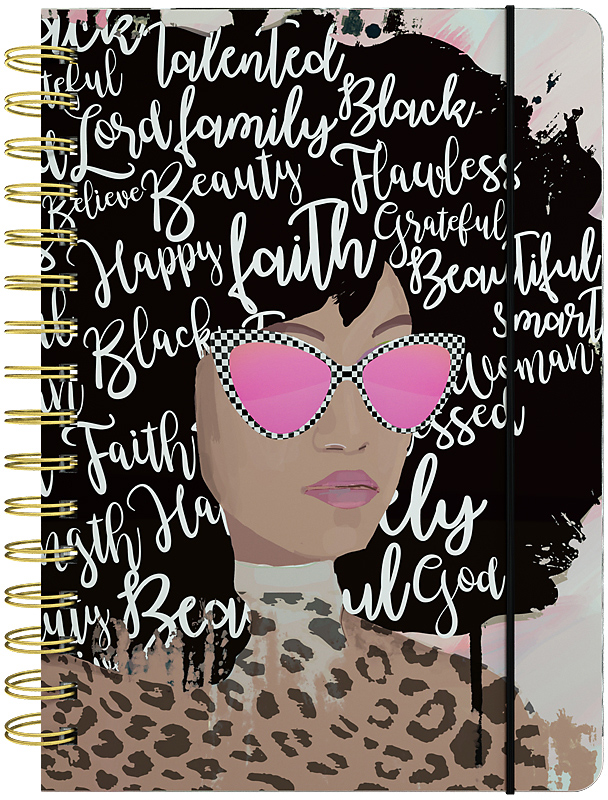 Talented
Lord family Black
Believe Beauty Flawless
Happy faith Grateful
Beautiful
Black smart
Woman
Faith
God